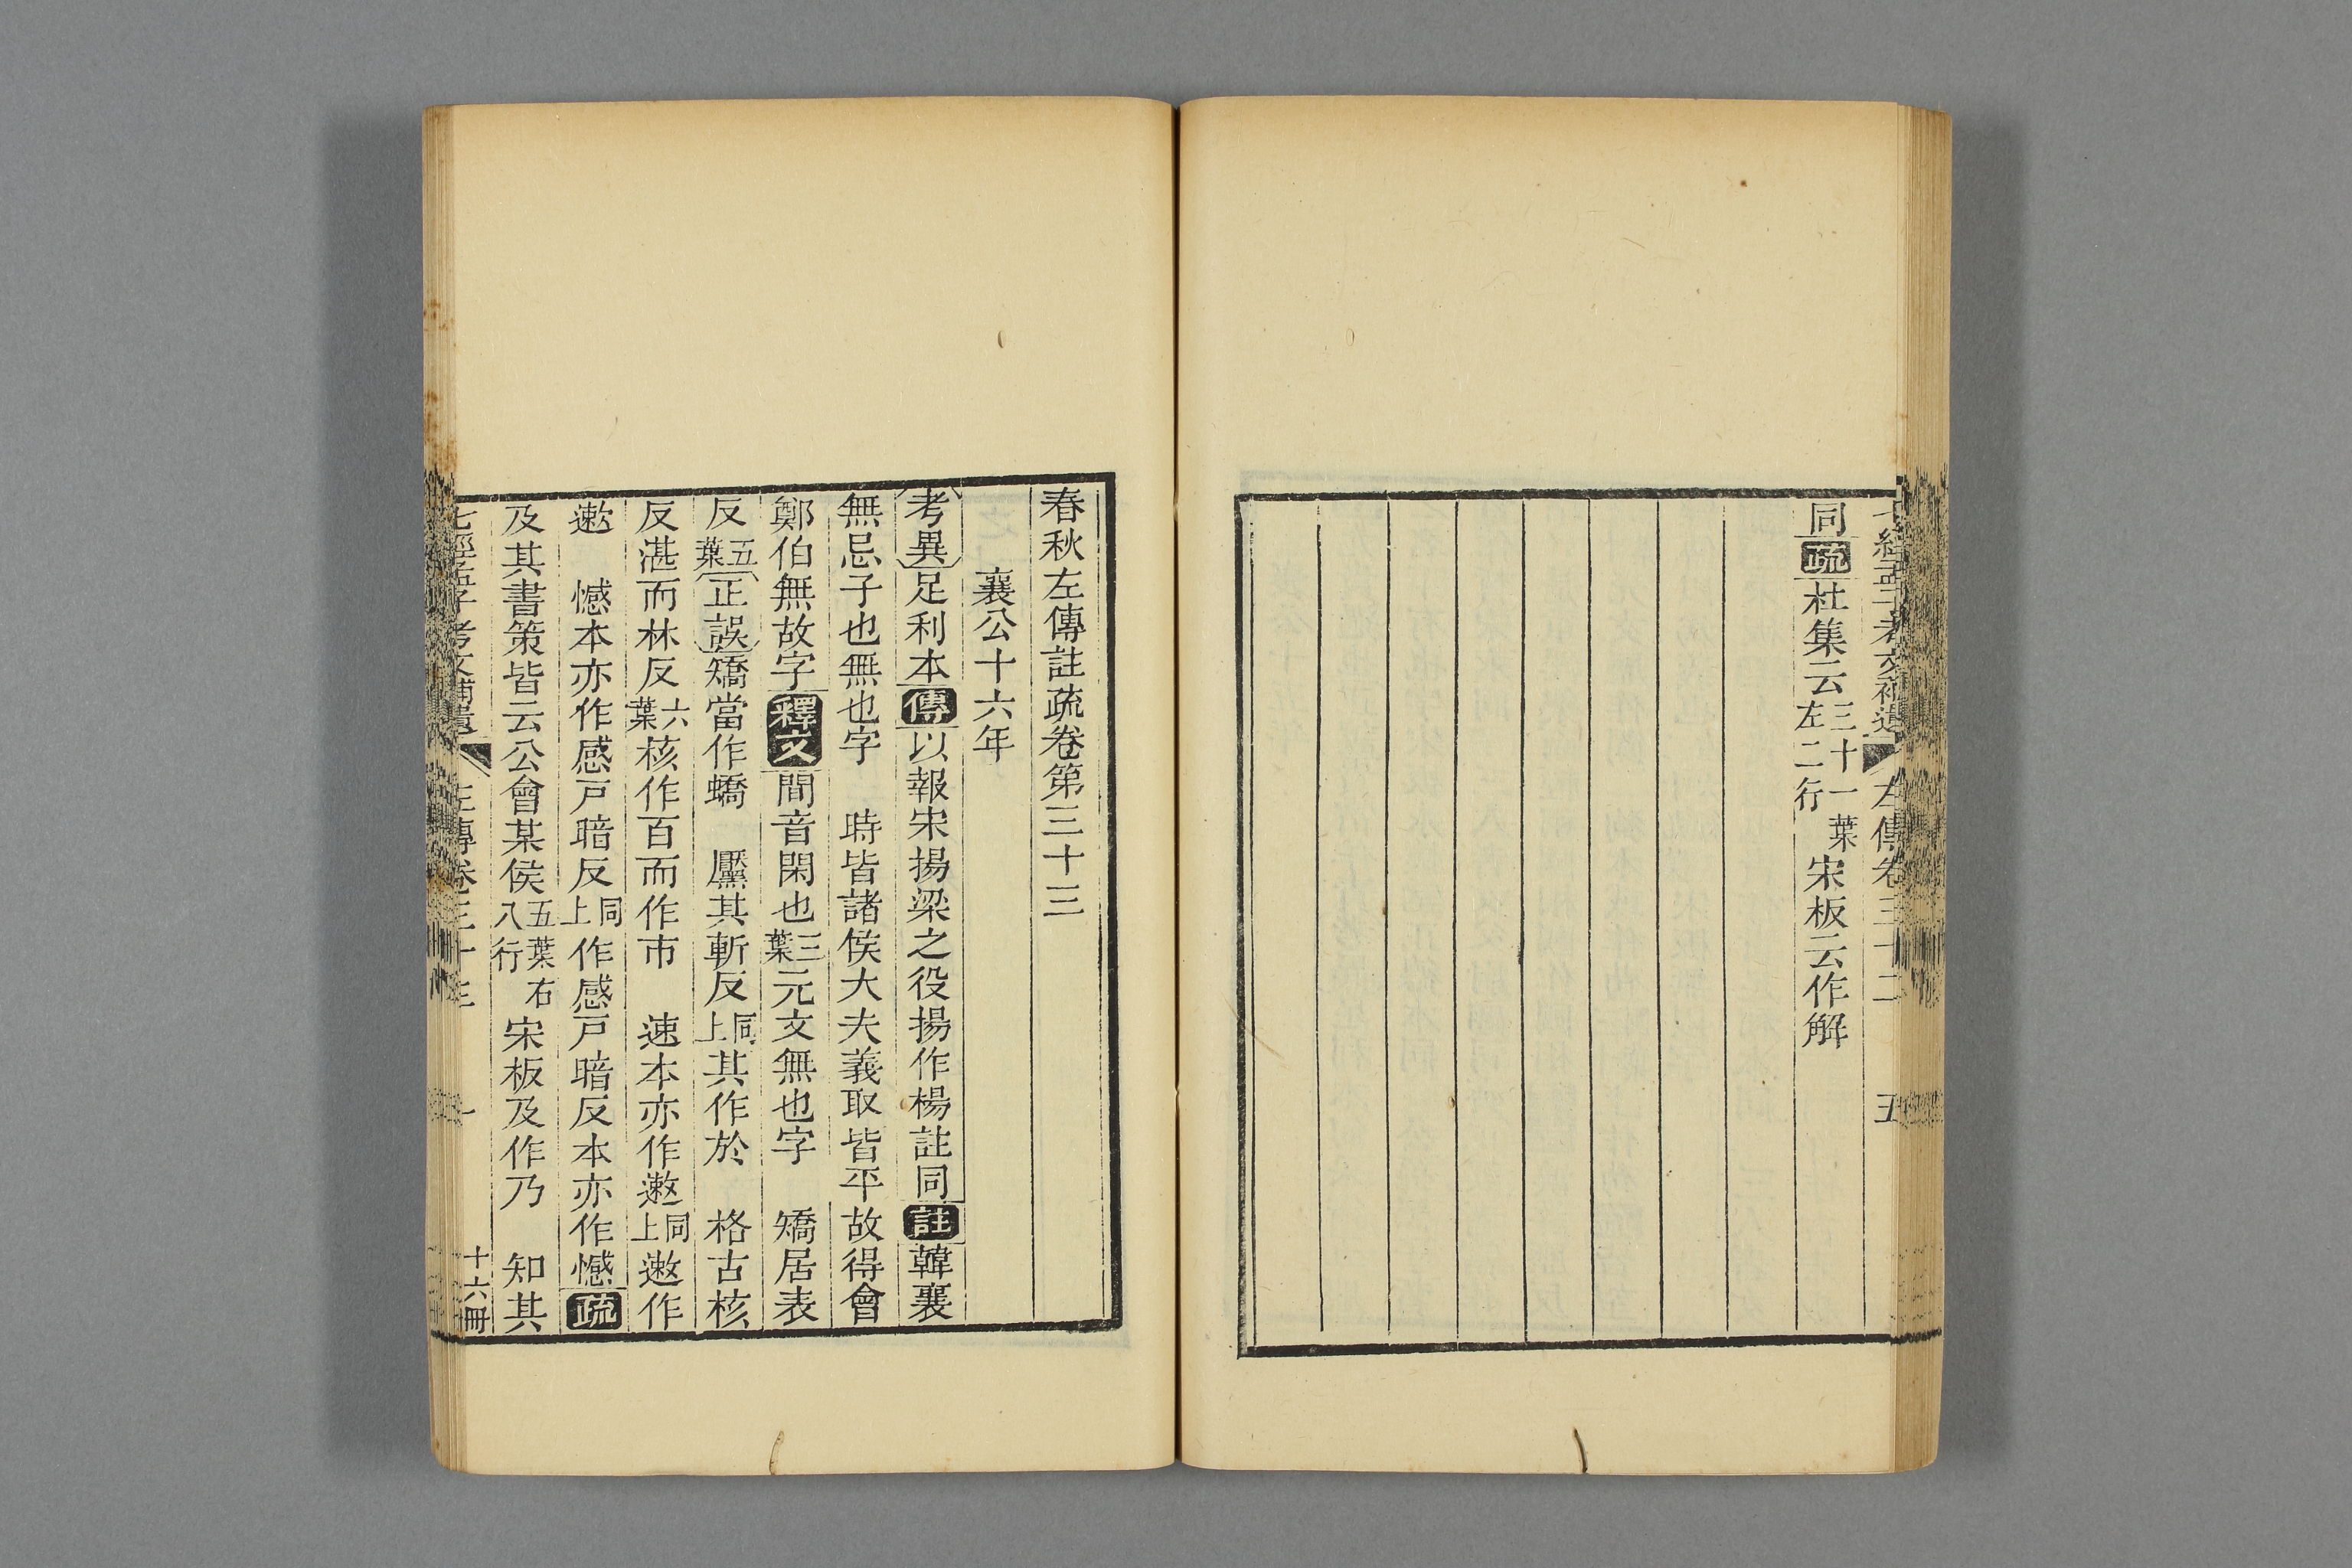 七經孟子考文補遺 左傳卷三十二 五
同疏杜集云三十一葉左二行宋板云作解
春秋左傳註疏卷第三十三
襄公十六年
考異足利本傳以報宋揚梁之役揚作楊註同註韓襄
無忌子也無也字 時皆諸侯大夫義取皆平 故得會
鄭伯無故字釋文間音閑也三葉元文無也字 矯居表
反五葉正誤矯當作蟜 黶其斬反同上其作於 格古核
反湛而林反六葉核作百而作市 速本亦作遬同上遬作
遬 憾本亦作感戸暗反同上作感戸暗反本亦作憾疏
及其書策皆云公會某侯五葉右八行宋板及作乃 知其
七經孟子考文補遺 左傳卷三十三 一 十六冊